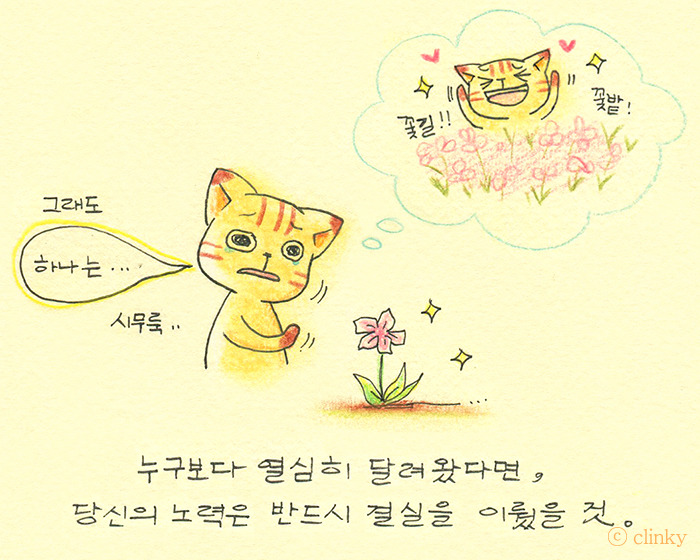 꽃길!!
꽃밭!
그래도
하나는...
시무룩..
...
누구보다 열심히 달려왔다면,
당신의 노력은 반드시 결실을 이뤘을 것。
ⓒ clinky